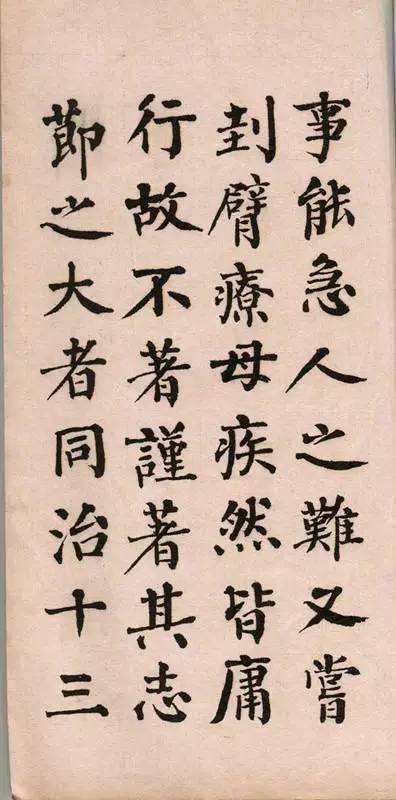 事能急人之難又嘗
刲臂療母疾然皆庸
行故不著謹著其志
節之大者同治十三